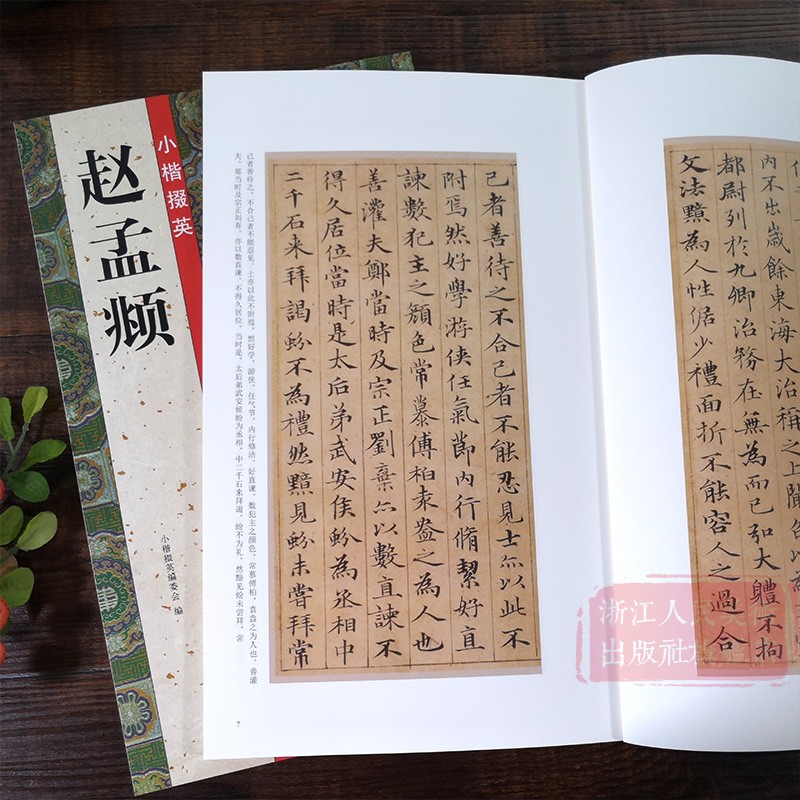 小楷掇英
赵孟𫖯
小楷掇英编委会 编
己者善待之，不合己者不能忍见，士亦以此不附焉。然好学，游侠，任气节，内行修洁，好直谏，数犯主之颜色，常慕傅柏、袁盎之为人也。善灌
夫、郑当时及宗正刘弃。亦以数直谏，不得久居位。当时是，太后弟武安侯蚡为丞相，中二千石来拜谒，蚡不为礼。然黯见蚡未尝拜，常
己者善待之不合己者不能忍見士亦以此不
附焉然好學游俠任氣節內行脩絜好直
諫數犯主之顏色常慕傅柏袁盎之為人也
善灌夫鄭當時及宗正劉棄亦以數直諫不
得久居位當時是太后弟武安侯蚡為丞相中
二千石来拜謁蚡不為禮然黯見蚡未嘗拜常
7
内不出歲餘東海大治稱之上聞召以為
都尉列於九卿治務在無為而已弘大體不拘
文法黯為人性倨少禮面折不能容人之過合
浙江人民美
出版社旗